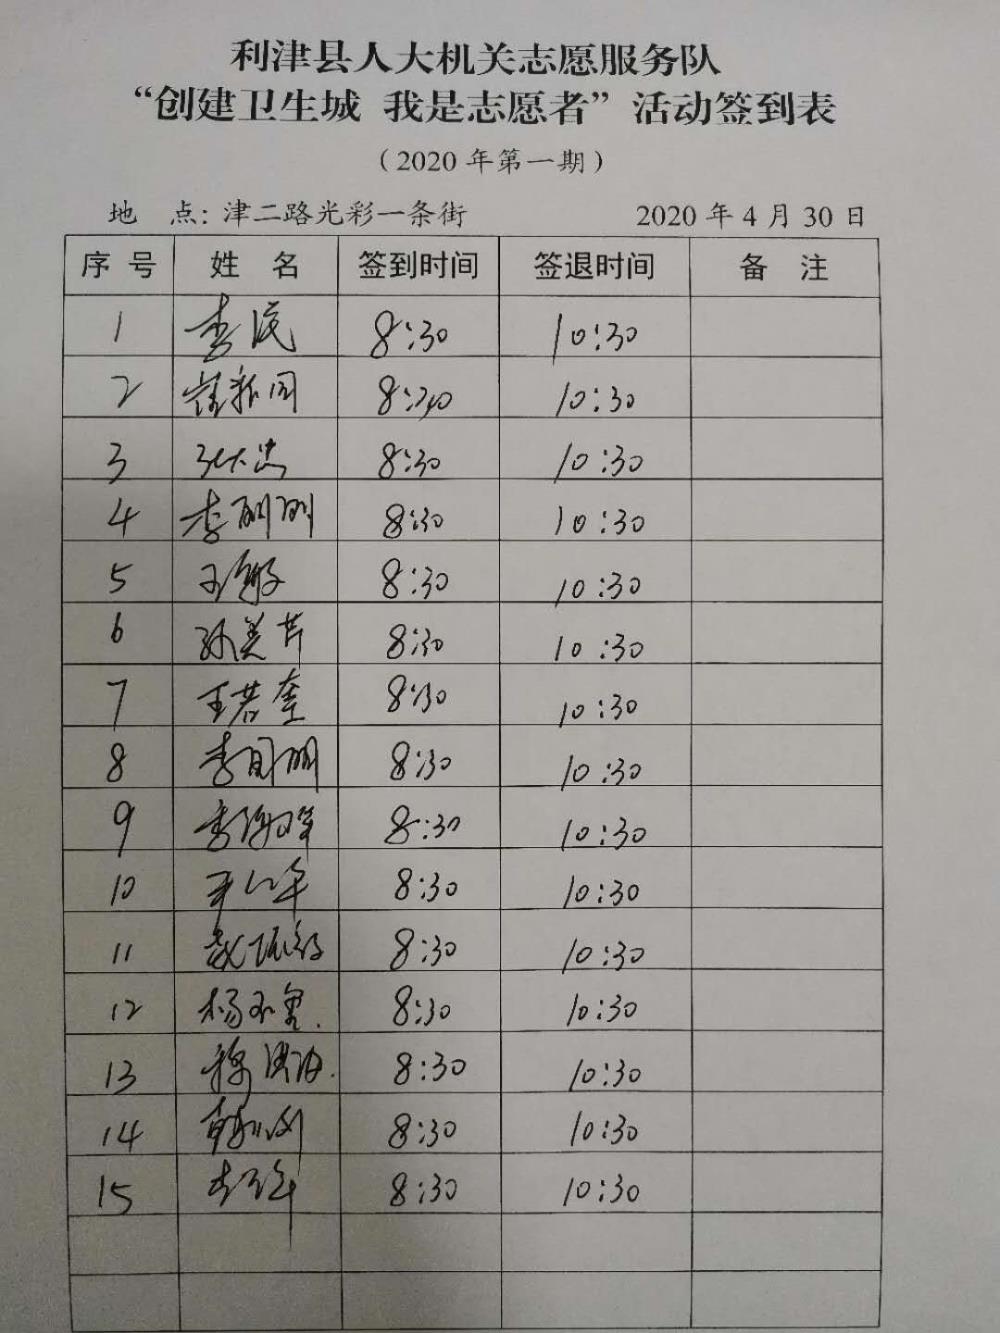 利津县人大机关志愿服务队
“创建卫生城 我是志愿者”活动签到表
（2020 年第一期）
地 点：津二路光彩一条街 2020 年 4 月 30 日
序 号 姓 名 签到时间 签退时间 备 注
1 8:30 10:30
2 崔新国 8:30 10:30
3 8:30 10:30
4 李丽丽 8:30 10:30
5 8:30 10:30
6 孙美芹 8:30 10:30
7 王若奎 8:30 10:30
8 李月明 8:30 10:30
9 8:30 10:30
10 8:30 10:30
11 8:30 10:30
12 8:30 10:30
13 8:30 10:30
14 8:30 10:30
15 8:30 10:30